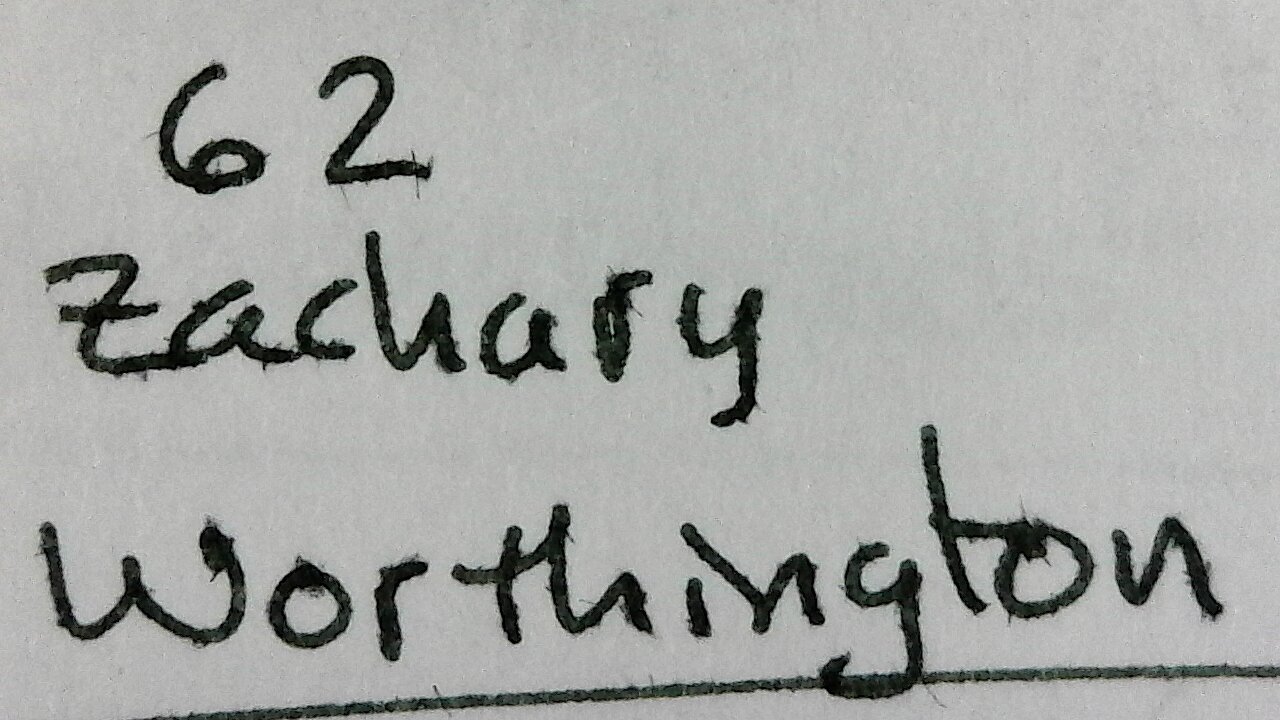 62
Zachary
Worthington